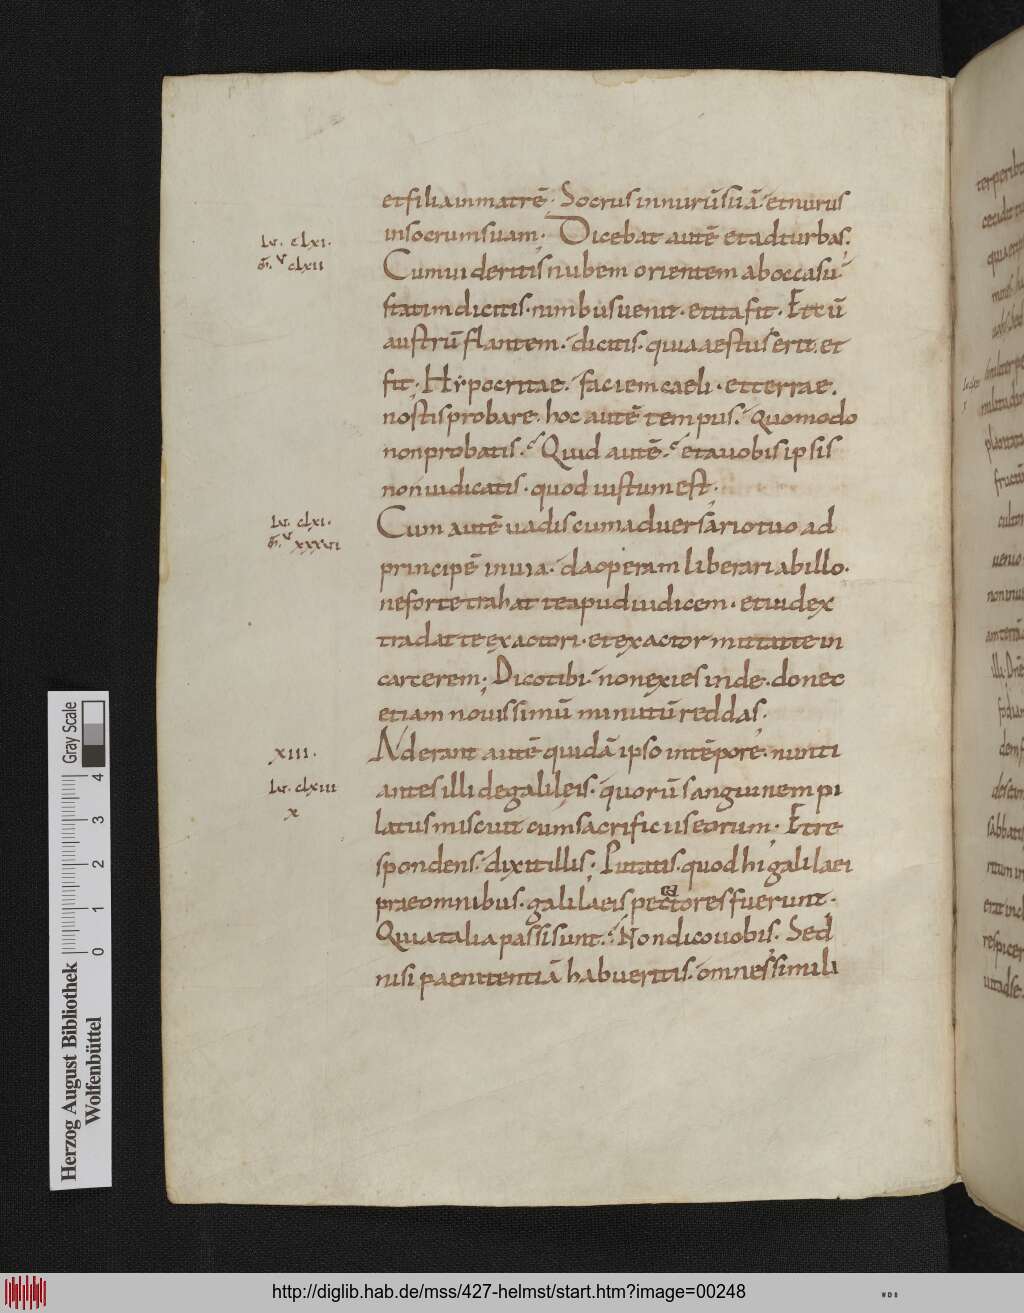 et filia in matrē. Socrus in nurū suā. et nurus
in socrum suam. Dicebat autē et ad turbas.
Lv. clxi.
M. v clxii
Cum uideritis nubem orientem ab occasu.
statim dicitis. nimbus uenit. et ita fit. Et cū
austrū flantem. dicitis. quia aestus erit. et
fit. Hypocritae. faciem caeli. et terrae.
nostis probare. hoc autē tempus. quomodo
non probatis. Quid autē. et a uobis ipsis
non iudicatis. quod iustum est.
Lv. clxi.
M. v xxxvi
Cum autē uadis cum aduersario tuo ad
principē in uia. da operam liberari ab illo.
ne forte trahat te apud iudicem. et iudex
tradat te exactori. et exactor mittat te in
carcerem. Dico tibi. non exies inde. donec
etiam nouissimū minutū reddas.
xiii.
Aderant autē quidā ipso intēpore. nunti
Lv. clxiii
x
antes illi de galileis. quorū sanguinem pi
latus miscuit cum sacrificiis eorum. Et re
spondens. dixit illis. Putatis. quod hi galilaei
prae omnibus. galilaeis peccatores fuerunt.
Quia talia passi sunt. Non dico uobis. Sed
nisi paenitentiā habueritis. omnes simili
Gray Scale
4
3
2
1
0
Herzog August Bibliothek
Wolfenbüttel
http://diglib.hab.de/mss/427-helmst/start.htm?image=00248